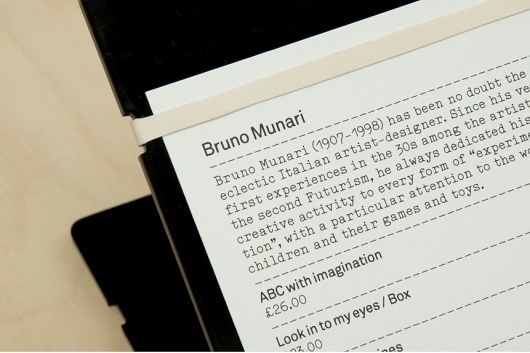 Bruno Munari
Bruno Munari (1907–1998) has been no doubt the
eclectic Italian artist-designer. Since his ve
first experiences in the 30s among the artist
the second Futurism, he always dedicated his
creative activity to every form of “experime
tion”, with a particular attention to the wo
children and their games and toys.
ABC with imagination
£26.00
Look in to my eyes / Box
23.00
ines